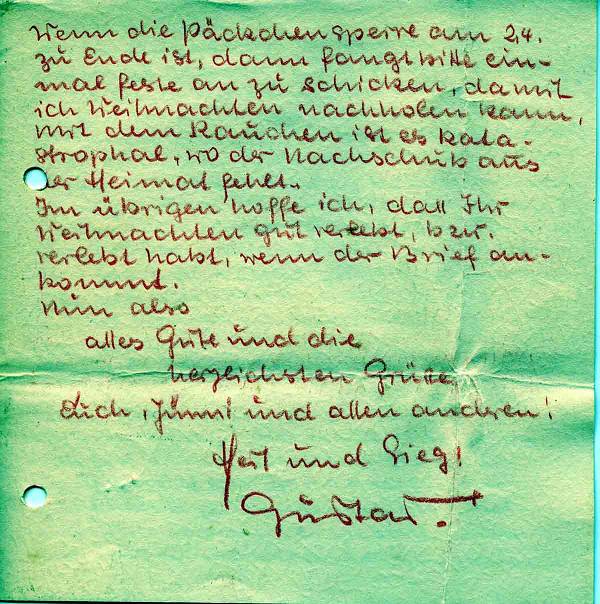 Wenn die Päckchensperre am 24.
zu Ende ist, dann fangt bitte ein-
mal feste an zu schicken, damit
ich Weihnachten nachholen kann,
mit dem Rauchen ist es kata-
strophal, wo der Nachschub aus
der Heimat fehlt.
Im übrigen hoffe ich, daß Ihr
Weihnachten gut verlebt, bzw.
verlebt habt, wenn der Brief an-
kommt.
Nun also
alles Gute und die
herzlichsten Grüße
Euch, und allen anderen!
Heil und Sieg!
Gustav.